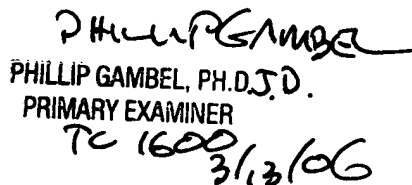 PHILLIP GAMBEL
PHILLIP GAMBEL, PH.D. J.D.
PRIMARY EXAMINER
TC 1600
3/13/06